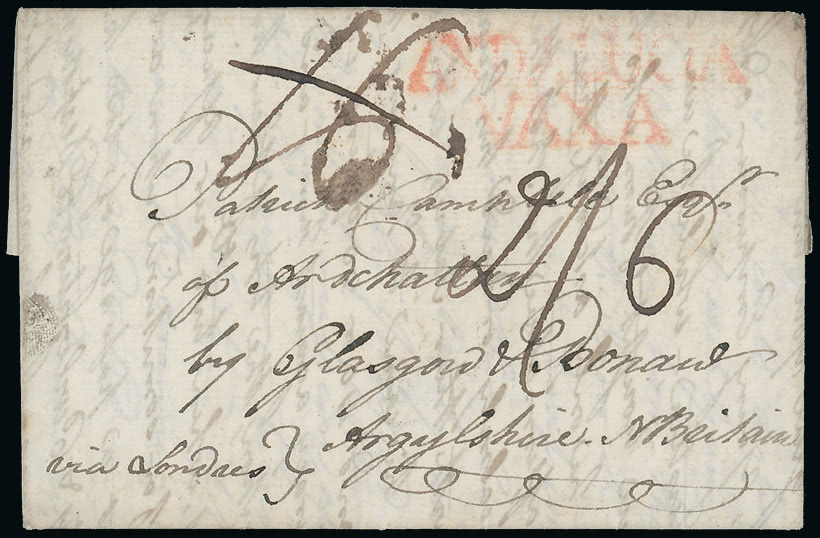 ANDALUCIA
VAXA
Patrick Campbell Esqr
of Ardchattan
2/6
by Glasgow & Bonaw
Argylshire. N Britain
via Londres